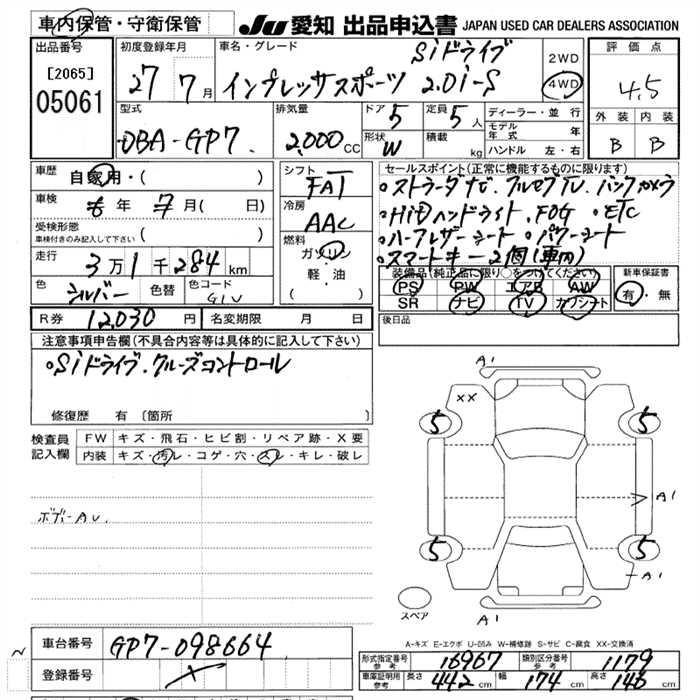 車内保管・守衛保管
JU 愛知 出品申込書 JAPAN USED CAR DEALERS ASSOCIATION
出品番号
[2065]
05061
初度登録年月
27 7月
車名・グレード
Siドライブ
インプレッサスポーツ 2.0i-S
2WD
4WD
評価点
4.5
外装 内装
B B
型式
DBA-GP7
排気量
2,000 CC
ドア 5
定員 5 人
形状 W
積載 kg
ディーラー・並行
モデル年式 年
ハンドル 左・右
車歴
自家用・( )
車検
年 月( 日)
受検形態
車検付きのみ記入して下さい ( )
走行
3万1千284km
色 シルバー 色替 色コード G1U
シフト
FAT
冷房
AAC
燃料
ガソリン
軽・油
( )
セールスポイント(正常に機能するものに限ります)
・ストラーダナビ.フルセグTV.バックカメラ
・HiDヘッドライト.FOG ・ETC
・ハーフレザーシート ・パワーシート
・スマートキー2個(車内)
装備品(純正品に限り○をつけてください)
PS PW エアB AW
SR ナビ TV カワシート
新車保証書
有・無
R券 12,030円
名変期限 月 日
後日品
注意事項申告欄(不具合内容等は具体的に記入して下さい)
・Siドライブ.クルーズコントロール
修復歴 有 〔箇所 〕
検査員
記入欄
FW キズ・飛石・ヒビ割・リペア跡・X要
内装 キズ・汚レ・コゲ・穴・スレ・キレ・破レ
ボデーAU
A1
XX
5 5
A1
5 5
A1
A1
スペア
A-キズ E-エクボ U-凹み W-補修跡 S-サビ C-腐食 XX-交換済
車台番号 GP7-098664
登録番号
形式指定番号 参考 16967
類別区分番号 参考 1179
車庫証明用 参考 長さ 442 cm 幅 174 cm 高さ 146 cm